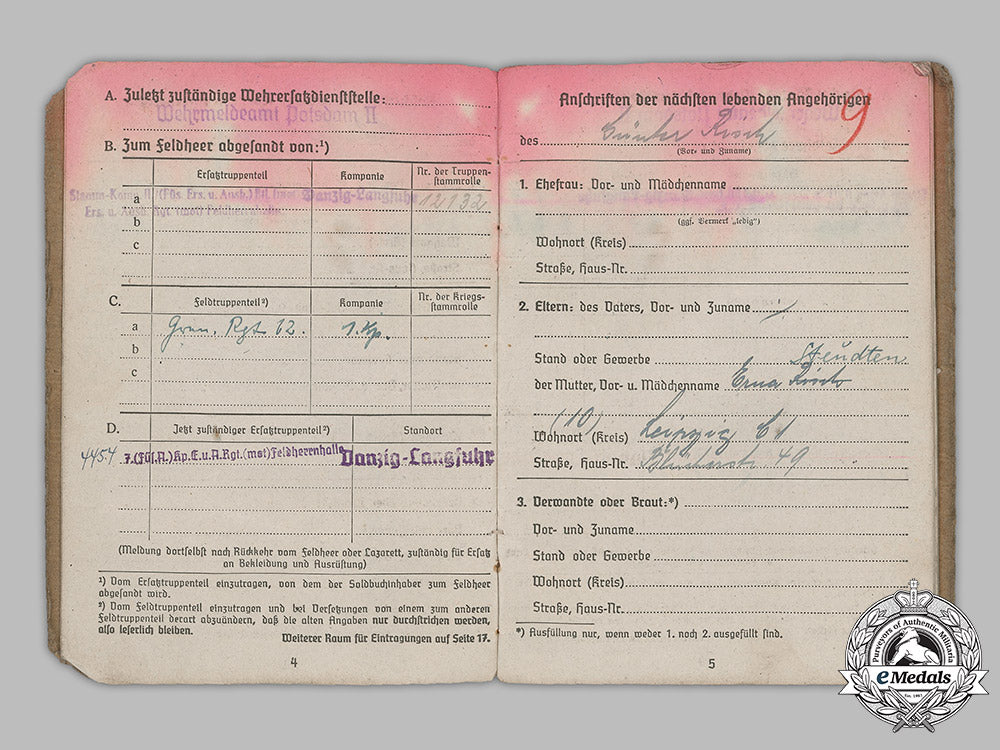 A. Zuletzt zuständige Wehrersatzdienststelle:
Wehrmeldeamt Potsdam II
B. Zum Feldheer abgesandt von:¹)
Ersatztruppenteil
Kompanie
Nr. der Truppenstammrolle
a
(Füs. Ers. u. Ausb.) Btl. (mot) Danzig-Langfuhr
12132
Ers. u. Ausb. Rgt. (mot) Feldherrnhalle
b
c
C.
Feldtruppenteil²)
Kompanie
Nr. der Kriegsstammrolle
a
Gren. Rgt. 62.
1. Kp.
b
c
D.
Jetzt zuständiger Ersatztruppenteil²)
Standort
4454
7.(Füs.A.)Kp.E.u.A.Rgt.(mot)Feldherrnhalle
Danzig-Langfuhr
(Meldung dortselbst nach Rückkehr vom Feldheer oder Lazarett, zuständig für Ersatz
an Bekleidung und Ausrüstung)
¹) Vom Ersatztruppenteil einzutragen, von dem der Soldbuchinhaber zum Feldheer
abgesandt wird.
²) Vom Feldtruppenteil einzutragen und bei Versetzungen von einem zum anderen
Feldtruppenteil derart abzuändern, daß die alten Angaben nur durchstrichen werden,
also leserlich bleiben.
Weiterer Raum für Eintragungen auf Seite 17.
4
Anschriften der nächsten lebenden Angehörigen
9
des Günter Risch
(Vor- und Zuname)
1. Ehefrau: Vor- und Mädchenname
(ggf. Vermerk „ledig")
Wohnort (Kreis)
Straße, Haus-Nr.
2. Eltern: des Vaters, Vor- und Zuname
Stand oder Gewerbe
Steudten
der Mutter, Vor- u. Mädchenname Erna Risch
(10)
Wohnort (Kreis) Leipzig C1
Straße, Haus-Nr. Blücherstr. 49
3. Verwandte oder Braut:*)
Vor- und Zuname
Stand oder Gewerbe
Wohnort (Kreis)
Straße, Haus-Nr.
*) Ausfüllung nur, wenn weder 1. noch 2. ausgefüllt sind.
5
Purveyors of Authentic Militaria
eMedals